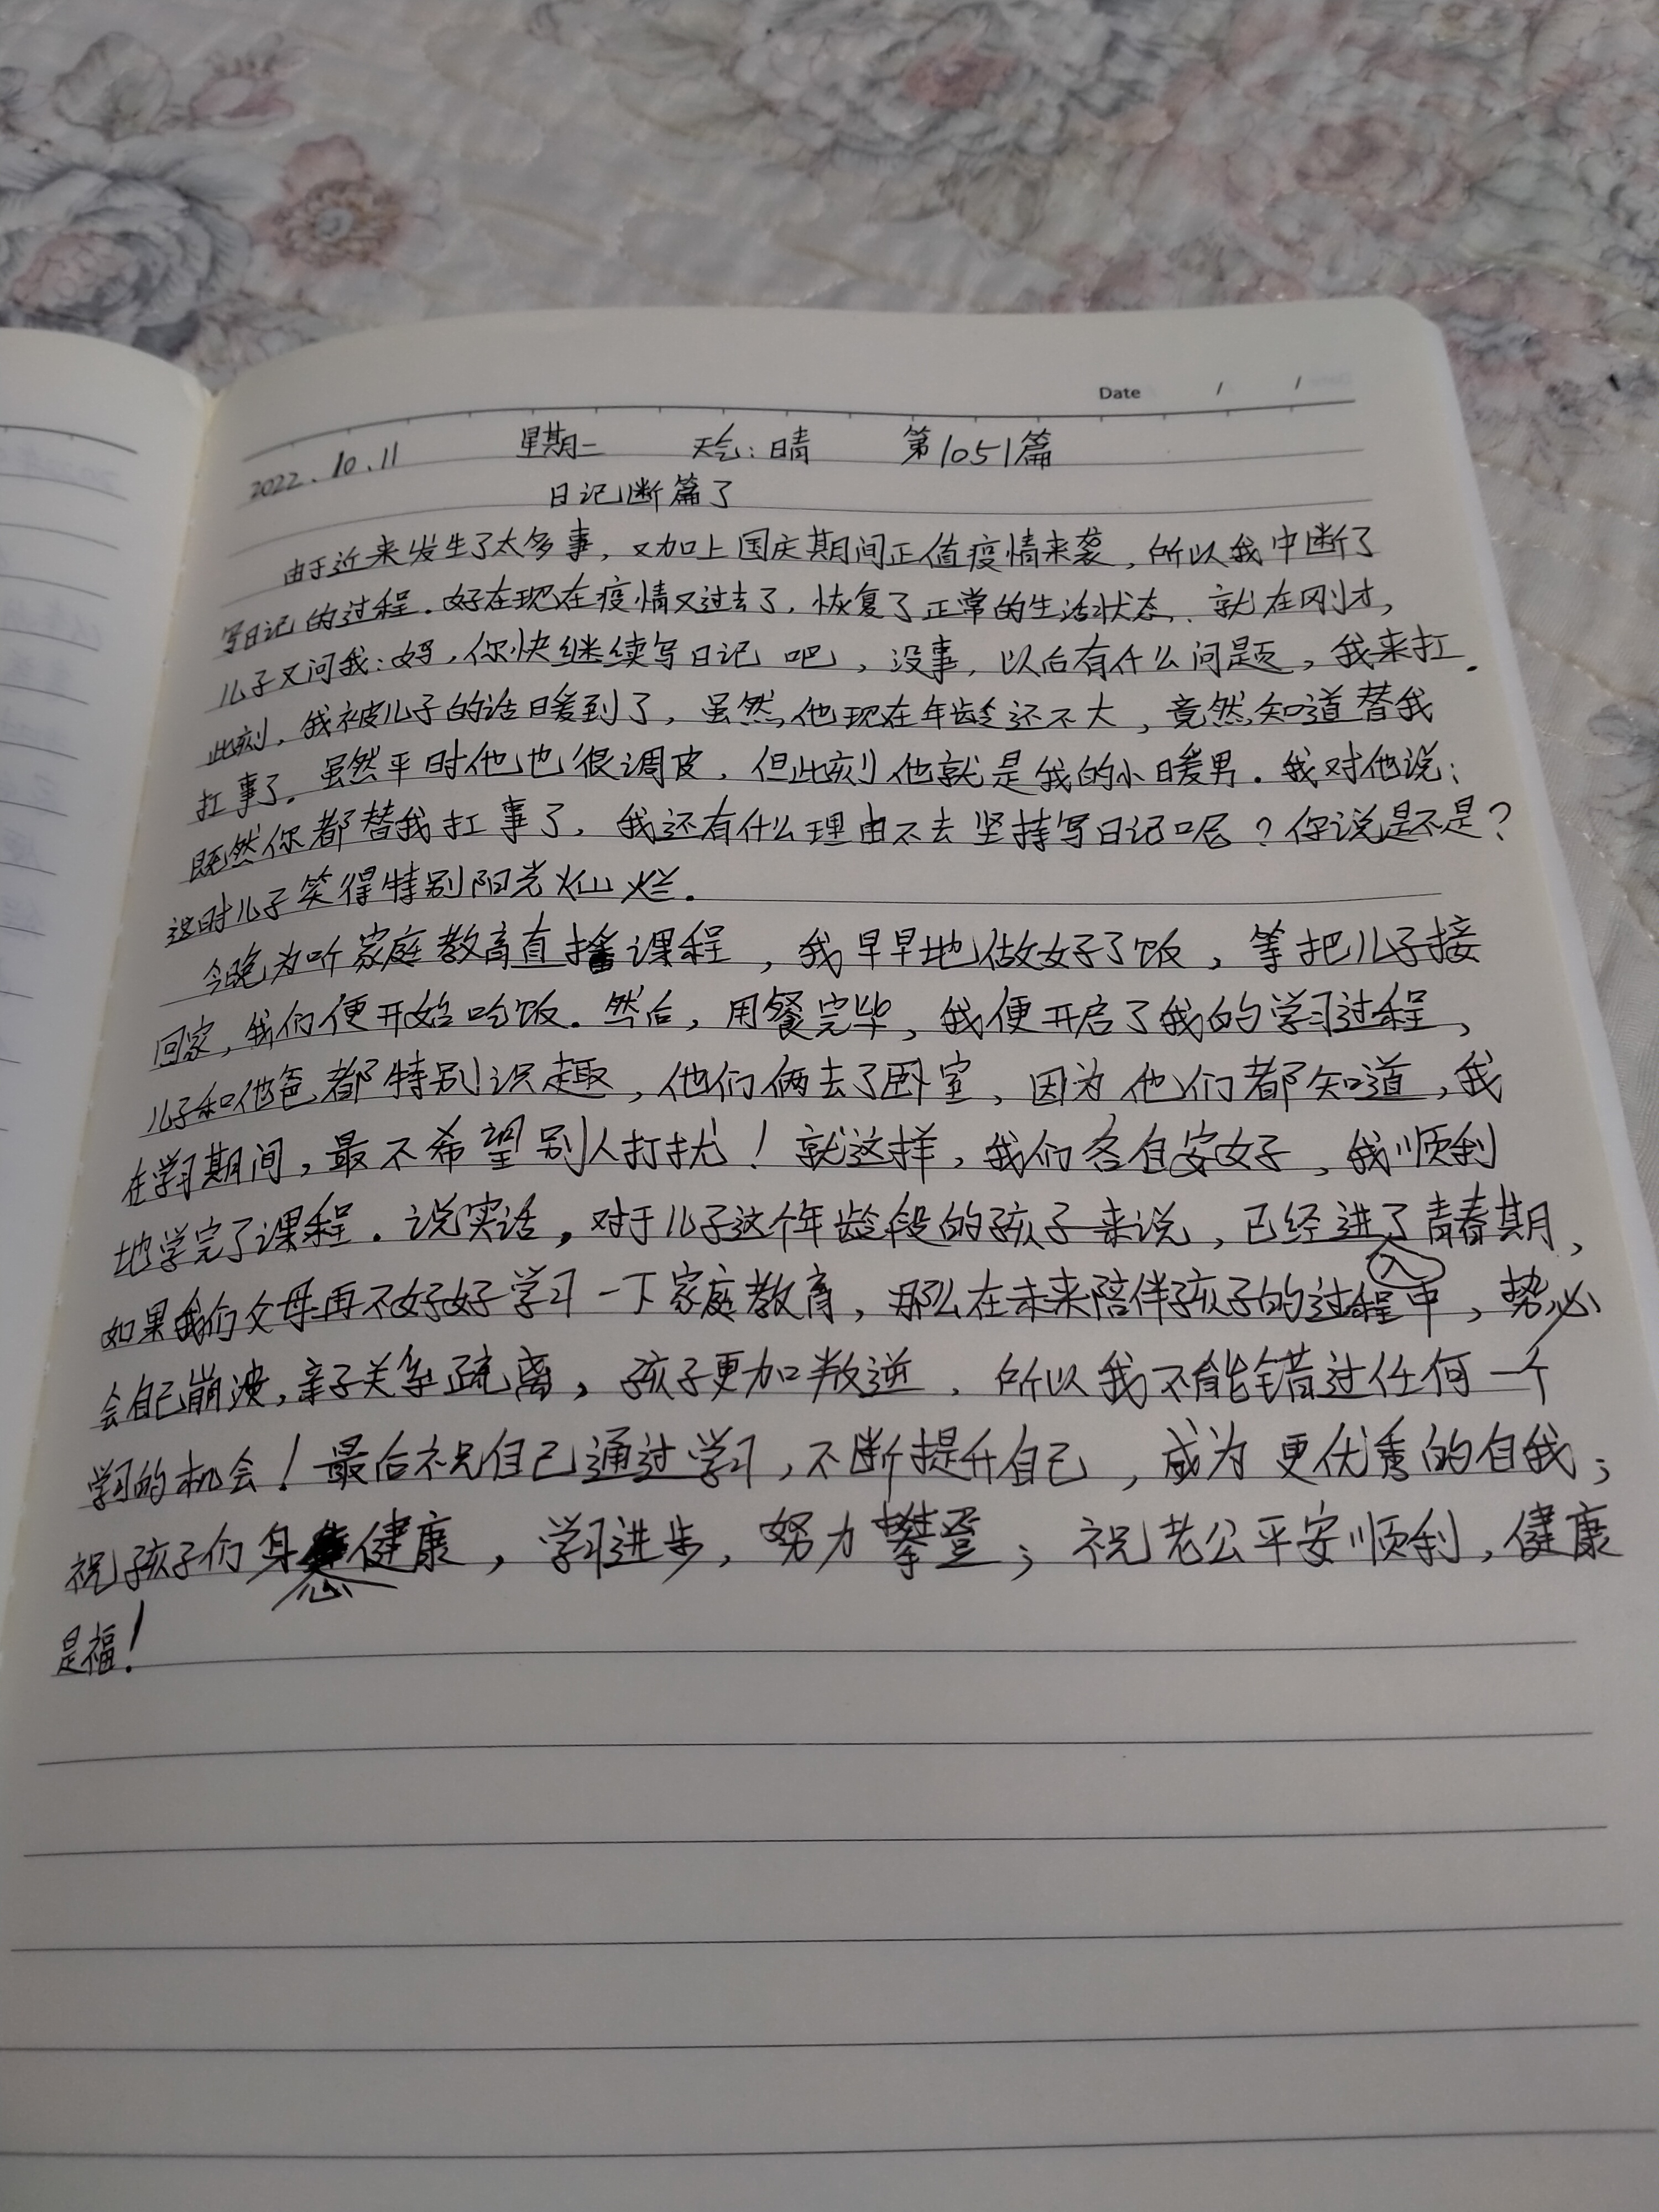 Date / /
2022.10.11 星期二 天气:晴 第1051篇
日记断篇了
由于近来发生了太多事,又加上国庆期间正值疫情来袭,所以我中断了
写日记的过程.好在现在疫情又过去了,恢复了正常的生活状态.就在刚才,
儿子又问我:妈,你快继续写日记吧,没事,以后有什么问题,我来扛.
此刻,我被儿子的话暖到了,虽然他现在年龄还不大,竟然知道替我
扛事了.虽然平时他也很调皮,但此刻他就是我的小暖男.我对他说:
既然你都替我扛事了,我还有什么理由不去坚持写日记呢?你说是不是?
这时儿子笑得特别阳光灿烂.
今晚为听家庭教育直播课程,我早早地做好了饭,等把儿子接
回家,我们便开始吃饭.然后,用餐完毕,我便开启了我的学习过程,
儿子和他爸都特别识趣,他们俩去了卧室,因为他们都知道,我
在学习期间,最不希望别人打扰!就这样,我们各自安好,我顺利
地学完了课程.说实话,对于儿子这个年龄段的孩子来说,已经进入了青春期,
如果我们父母再不好好学习一下家庭教育,那么在未来陪伴孩子的过程中,势必
会自己崩溃,亲子关系疏离,孩子更加叛逆.所以我不能错过任何一个
学习的机会!最后祝自己通过学习,不断提升自己,成为更优秀的自我;
祝孩子们身健康,学习进步,努力攀登;祝老公平安顺利,健康
是福!